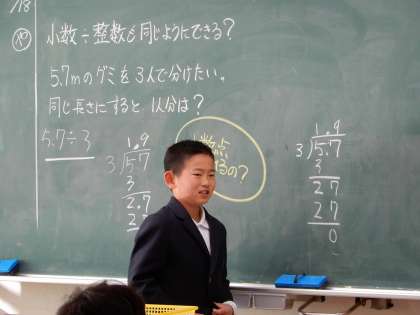 /18
小数÷整数も同じようにできる?
5.7mのゲミを3人で分けたい。
同じ長さにすると1人分は?
5.7÷3
1.9
3)5.7
3
2.7
小数点
の?
1.9
3)5.7
3
27
27
0